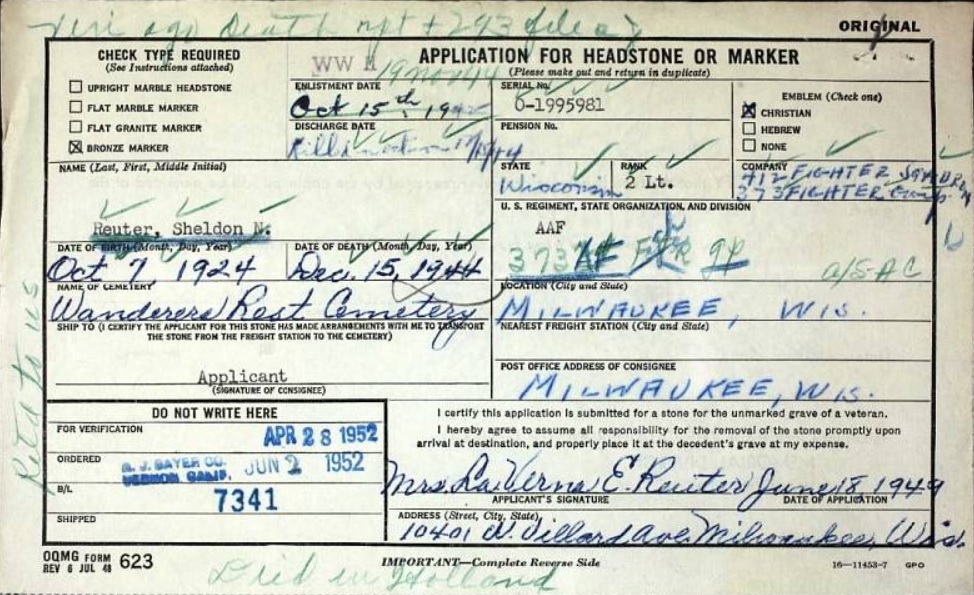 Veri ago Death rpt + 293 file
ORIGINAL
CHECK TYPE REQUIRED
(See Instructions attached)
UPRIGHT MARBLE HEADSTONE
FLAT MARBLE MARKER
FLAT GRANITE MARKER
BRONZE MARKER
WW II
APPLICATION FOR HEADSTONE OR MARKER
(Please make out and return in duplicate)
19 Nov 44
ENLISTMENT DATE
Oct 15th, 1942
DISCHARGE DATE
Killed in action 12/15/44
SERIAL No.
O-1995981
PENSION No.
EMBLEM (Check one)
CHRISTIAN
HEBREW
NONE
NAME (Last, First, Middle Initial)
Reuter, Sheldon N.
STATE
Wisconsin
RANK
2 Lt.
COMPANY
412 FIGHTER SQUADRON
373 FIGHTER Group
U. S. REGIMENT, STATE ORGANIZATION, AND DIVISION
AAF
373
A/S-AC
DATE OF BIRTH (Month, Day, Year)
Oct 7, 1924
DATE OF DEATH (Month, Day, Year)
Dec. 15, 1944
NAME OF CEMETERY
Wanderers Rest Cemetery
LOCATION (City and State)
MILWAUKEE, WIS.
SHIP TO (I CERTIFY THE APPLICANT FOR THIS STONE HAS MADE ARRANGEMENTS WITH ME TO TRANSPORT
THE STONE FROM THE FREIGHT STATION TO THE CEMETERY)
NEAREST FREIGHT STATION (City and State)
Applicant
(SIGNATURE OF CONSIGNEE)
POST OFFICE ADDRESS OF CONSIGNEE
MILWAUKEE, WIS.
DO NOT WRITE HERE
FOR VERIFICATION
APR 28 1952
ORDERED
A. J. BAYER CO.
VERNON CALIF.
JUN 2 1952
B/L
7341
SHIPPED
I certify this application is submitted for a stone for the unmarked grave of a veteran.
I hereby agree to assume all responsibility for the removal of the stone promptly upon
arrival at destination, and properly place it at the decedent's grave at my expense.
Mrs. LaVerna E. Reuter June 18, 1949
APPLICANT'S SIGNATURE
DATE OF APPLICATION
ADDRESS (Street, City, State)
10401 W. Villard Ave. Milwaukee, Wis.
OQMG FORM 623
REV 6 JUL 48
IMPORTANT—Complete Reverse Side
16—11453-7 GPO
Died in Holland